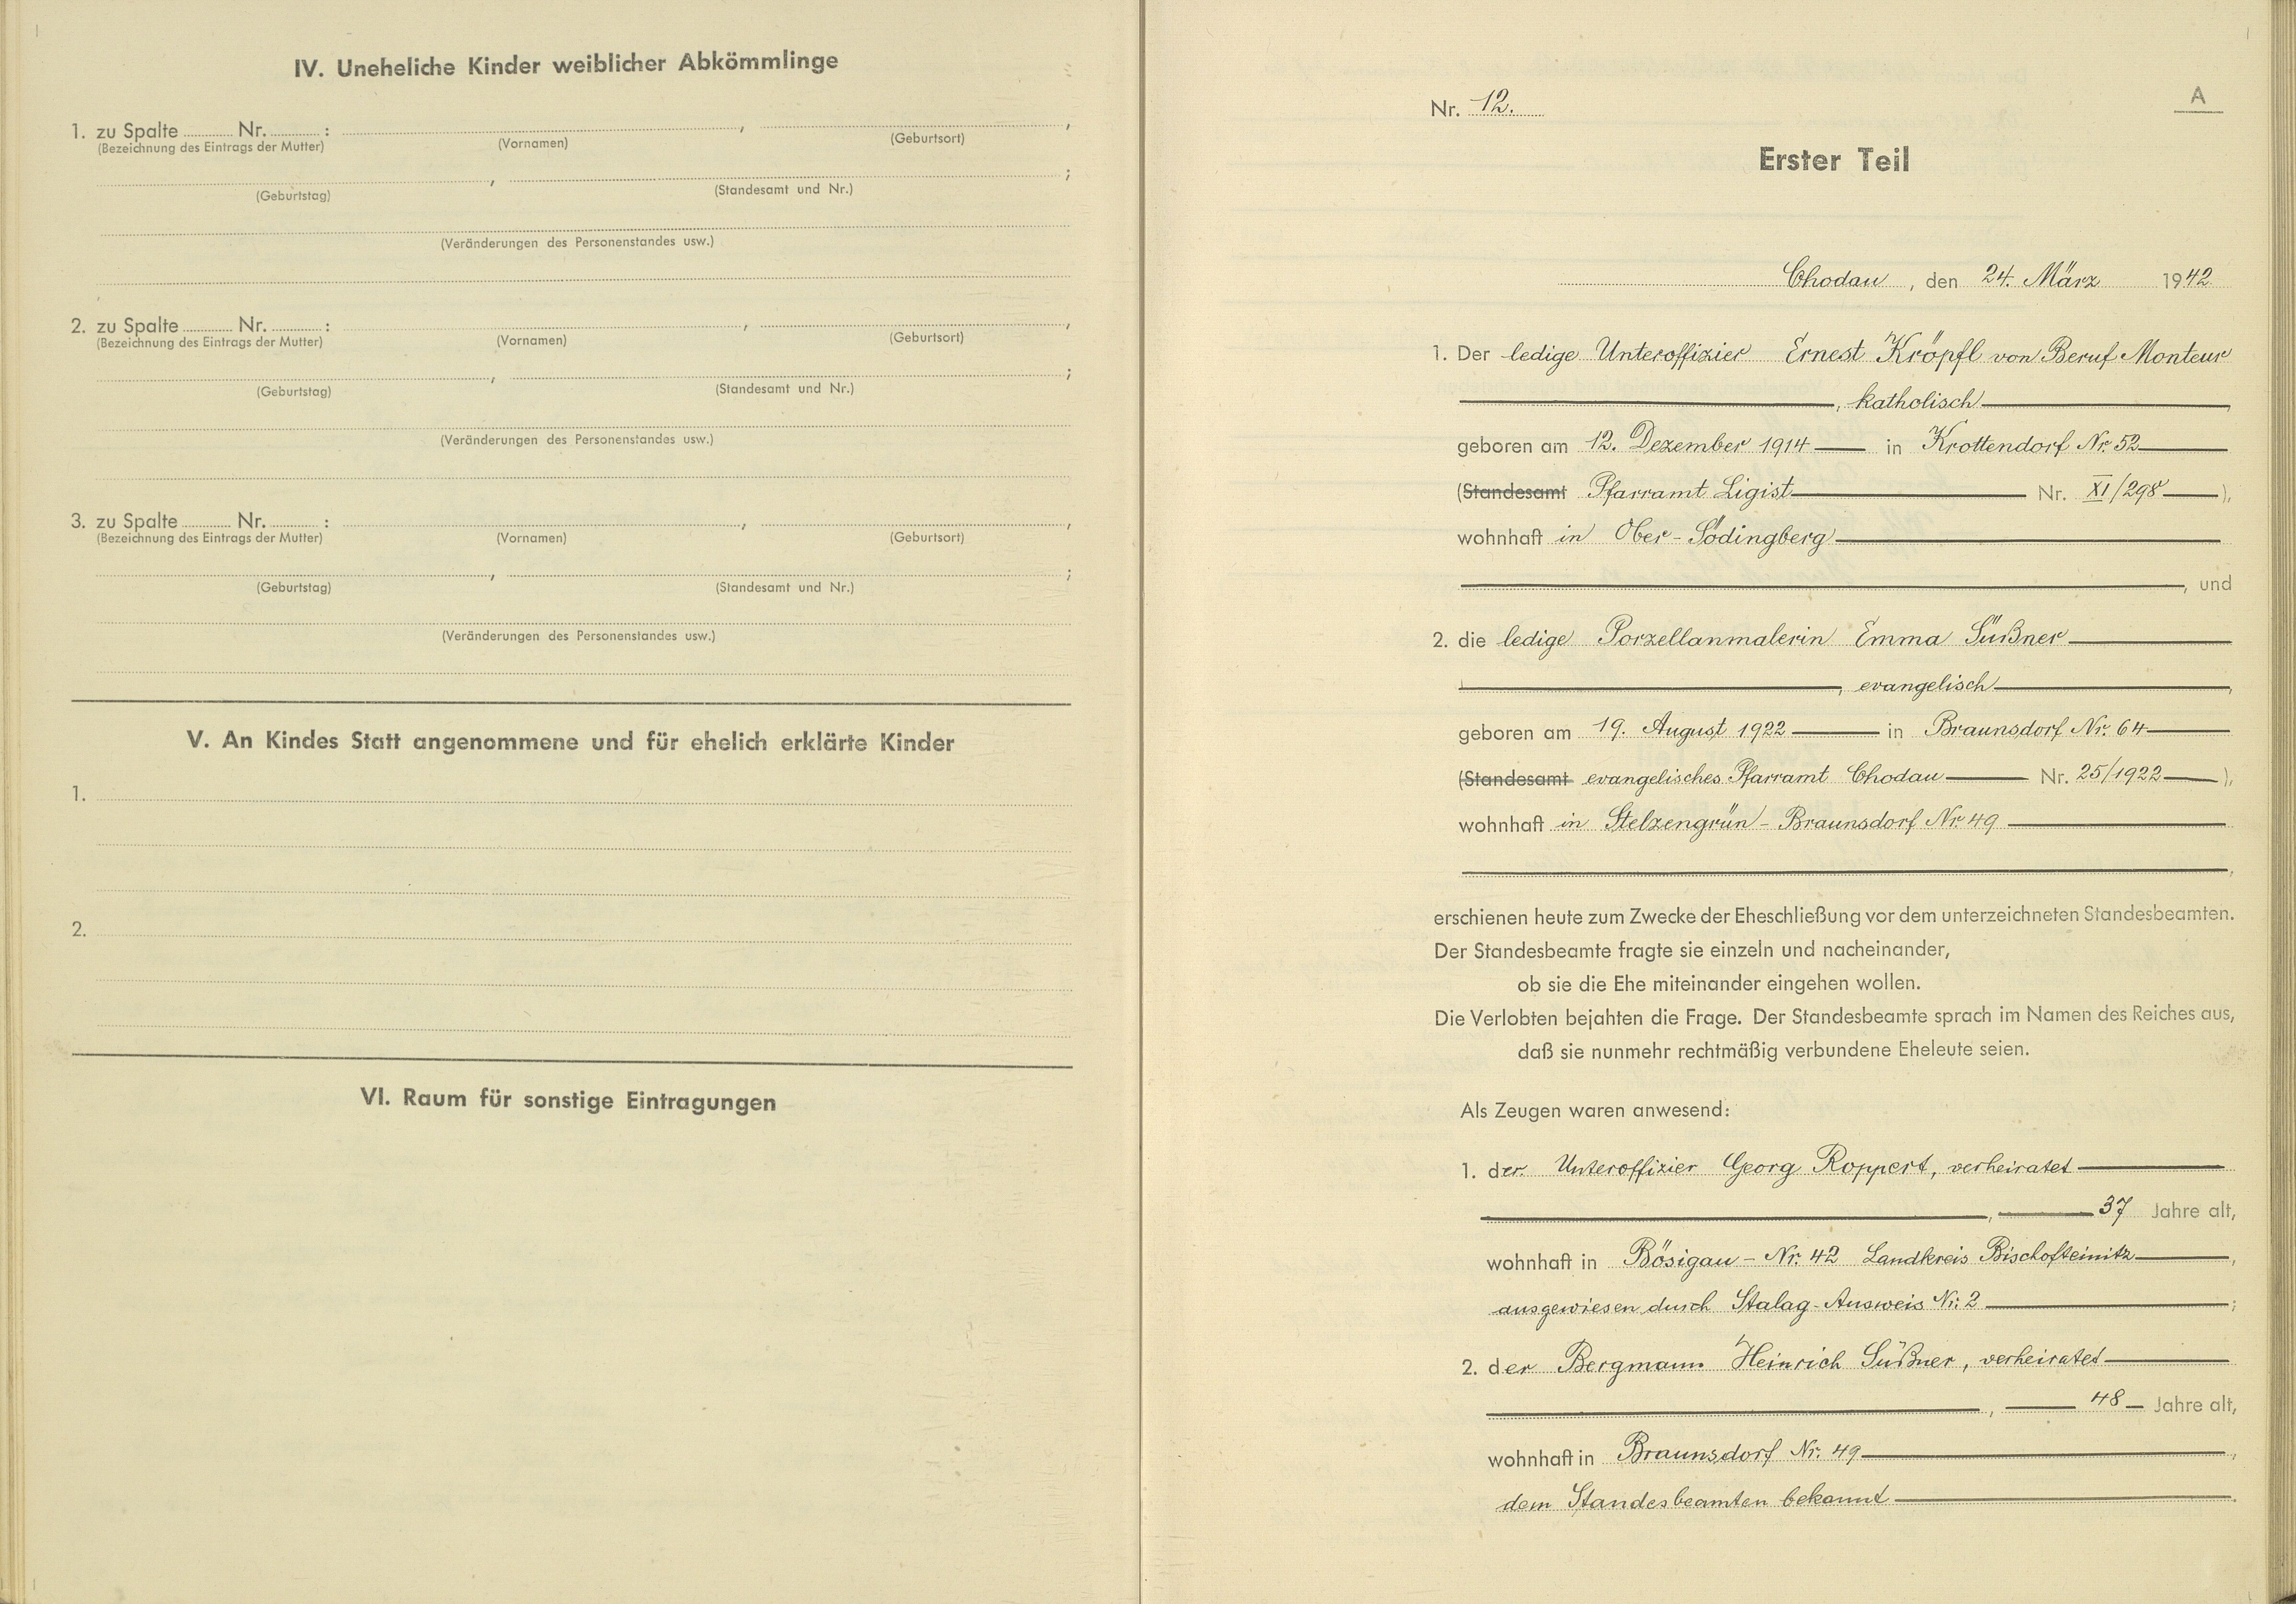 IV. Uneheliche Kinder weiblicher Abkömmlinge
1. zu Spalte Nr. : , ,
(Bezeichnung des Eintrags der Mutter) (Vornamen) (Geburtsort)
, ;
(Geburtstag) (Standesamt und Nr.)
(Veränderungen des Personenstandes usw.)
2. zu Spalte Nr. : , ,
(Bezeichnung des Eintrags der Mutter) (Vornamen) (Geburtsort)
, ;
(Geburtstag) (Standesamt und Nr.)
(Veränderungen des Personenstandes usw.)
3. zu Spalte Nr. : , ,
(Bezeichnung des Eintrags der Mutter) (Vornamen) (Geburtsort)
, ;
(Geburtstag) (Standesamt und Nr.)
(Veränderungen des Personenstandes usw.)
V. An Kindes Statt angenommene und für ehelich erklärte Kinder
1.
2.
VI. Raum für sonstige Eintragungen
A
Nr. 12.
Erster Teil
Chodau, den 24. März 1942
1. Der ledige Unteroffizier Ernest Kröpfl von Beruf Monteur
, katholisch ,
geboren am 12. Dezember 1914 in Krottendorf Nr. 52
(Standesamt Pfarramt Ligist Nr. XI/298 ),
wohnhaft in Ober-Södingberg
, und
2. die ledige Porzellanmalerin Emma Süßner
, evangelisch ,
geboren am 19. August 1922 in Braunsdorf Nr. 64
(Standesamt evangelisches Pfarramt Chodau Nr. 25/1922 ),
wohnhaft in Stelzengrün - Braunsdorf Nr. 49
,
erschienen heute zum Zwecke der Eheschließung vor dem unterzeichneten Standesbeamten.
Der Standesbeamte fragte sie einzeln und nacheinander,
ob sie die Ehe miteinander eingehen wollen.
Die Verlobten bejahten die Frage. Der Standesbeamte sprach im Namen des Reiches aus,
daß sie nunmehr rechtmäßig verbundene Eheleute seien.
Als Zeugen waren anwesend:
1. der Unteroffizier Georg Roppert, verheiratet
, 37 Jahre alt,
wohnhaft in Bösigau - Nr. 42 Landkreis Bischofteinitz ,
ausgewiesen durch Stalag-Ausweis Nr. 2 ;
2. der Bergmann Heinrich Süßner, verheiratet
, 48 Jahre alt,
wohnhaft in Braunsdorf Nr. 49 ,
dem Standesbeamten bekannt .